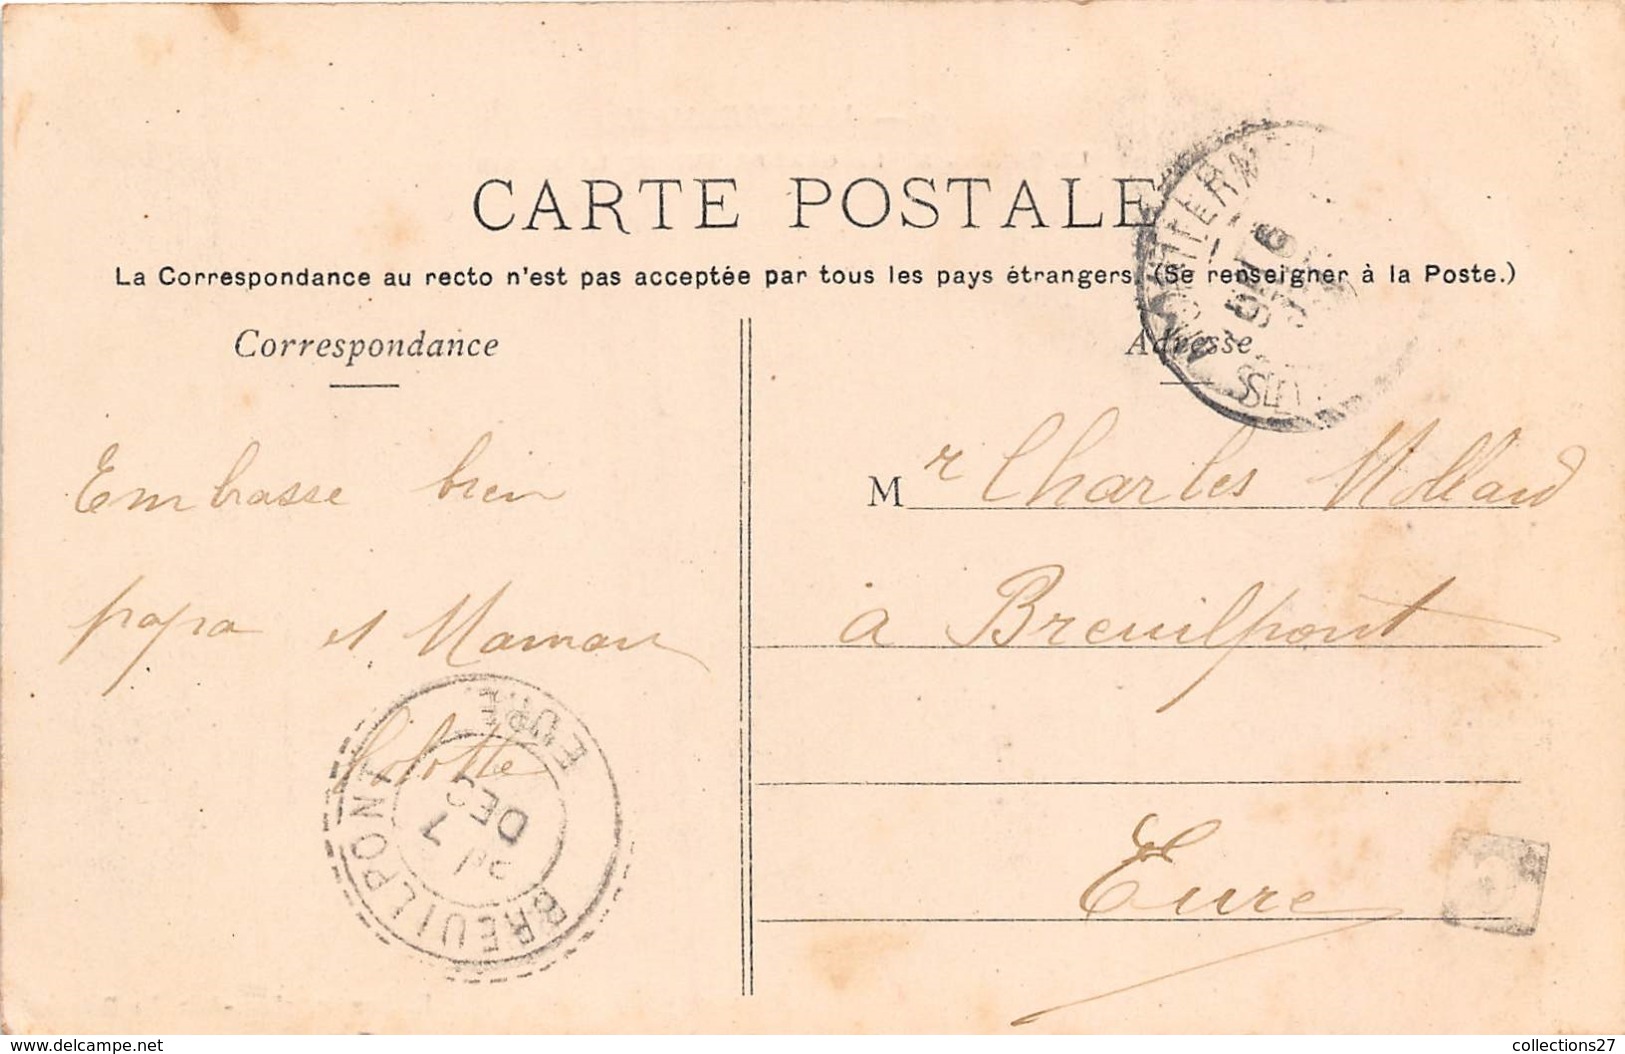 CARTE POSTALE
La Correspondance au recto n'est pas acceptée par tous les pays étrangers. (Se renseigner à la Poste.)
Correspondance
Embrasse bien
papa et Maman
Lolotte
Adresse
Mr Charles Mollard
à Breuilpont
Eure
BREUILPONT
EURE
7
DEC
www.delcampe.net
collections27